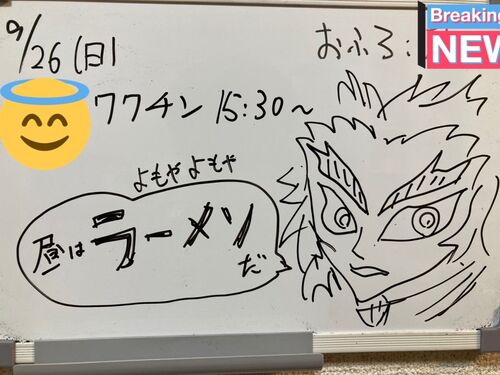 9/26(日)
おふろ:
Breaking
NEW
ワクチン 15:30～
よもやよもや
昼はラーメン
だ